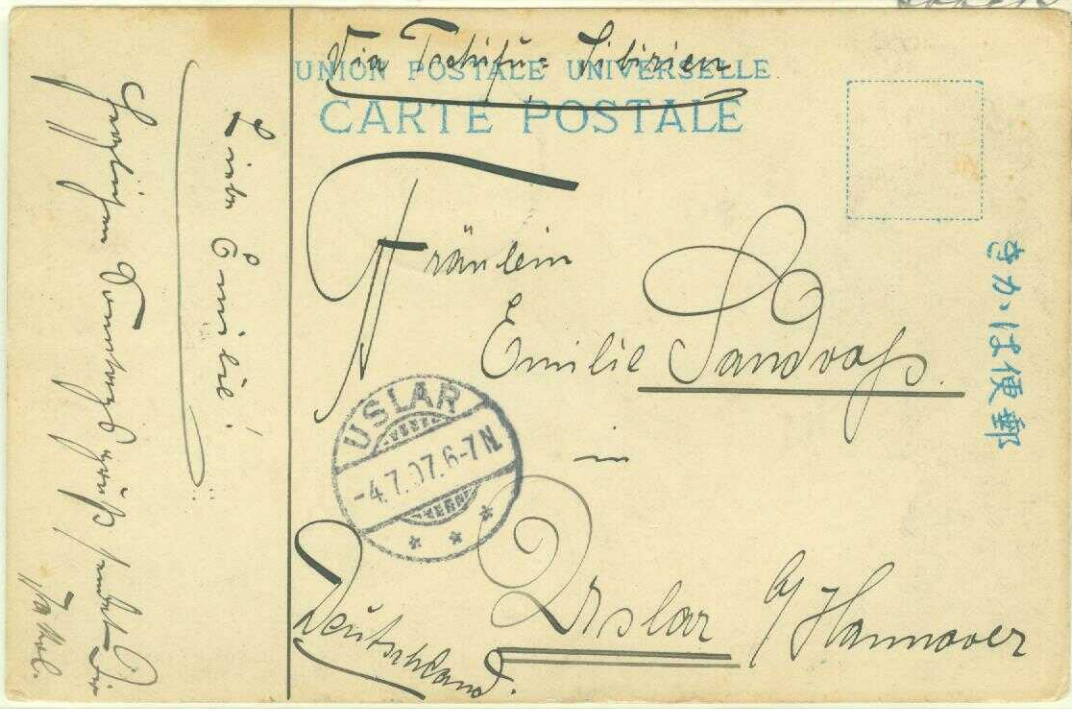 Via Tschifu - Sibirien
UNION POSTALE UNIVERSELLE
CARTE POSTALE
Fräulein
Emilie Sandvoß.
in
Uslar b/ Hannover
Deutschland.
USLAR
-4.7.07.6-7N.
きかは便郵
Liebe Emilie!
Herzlichen Sonntagsgruß sendet Dir